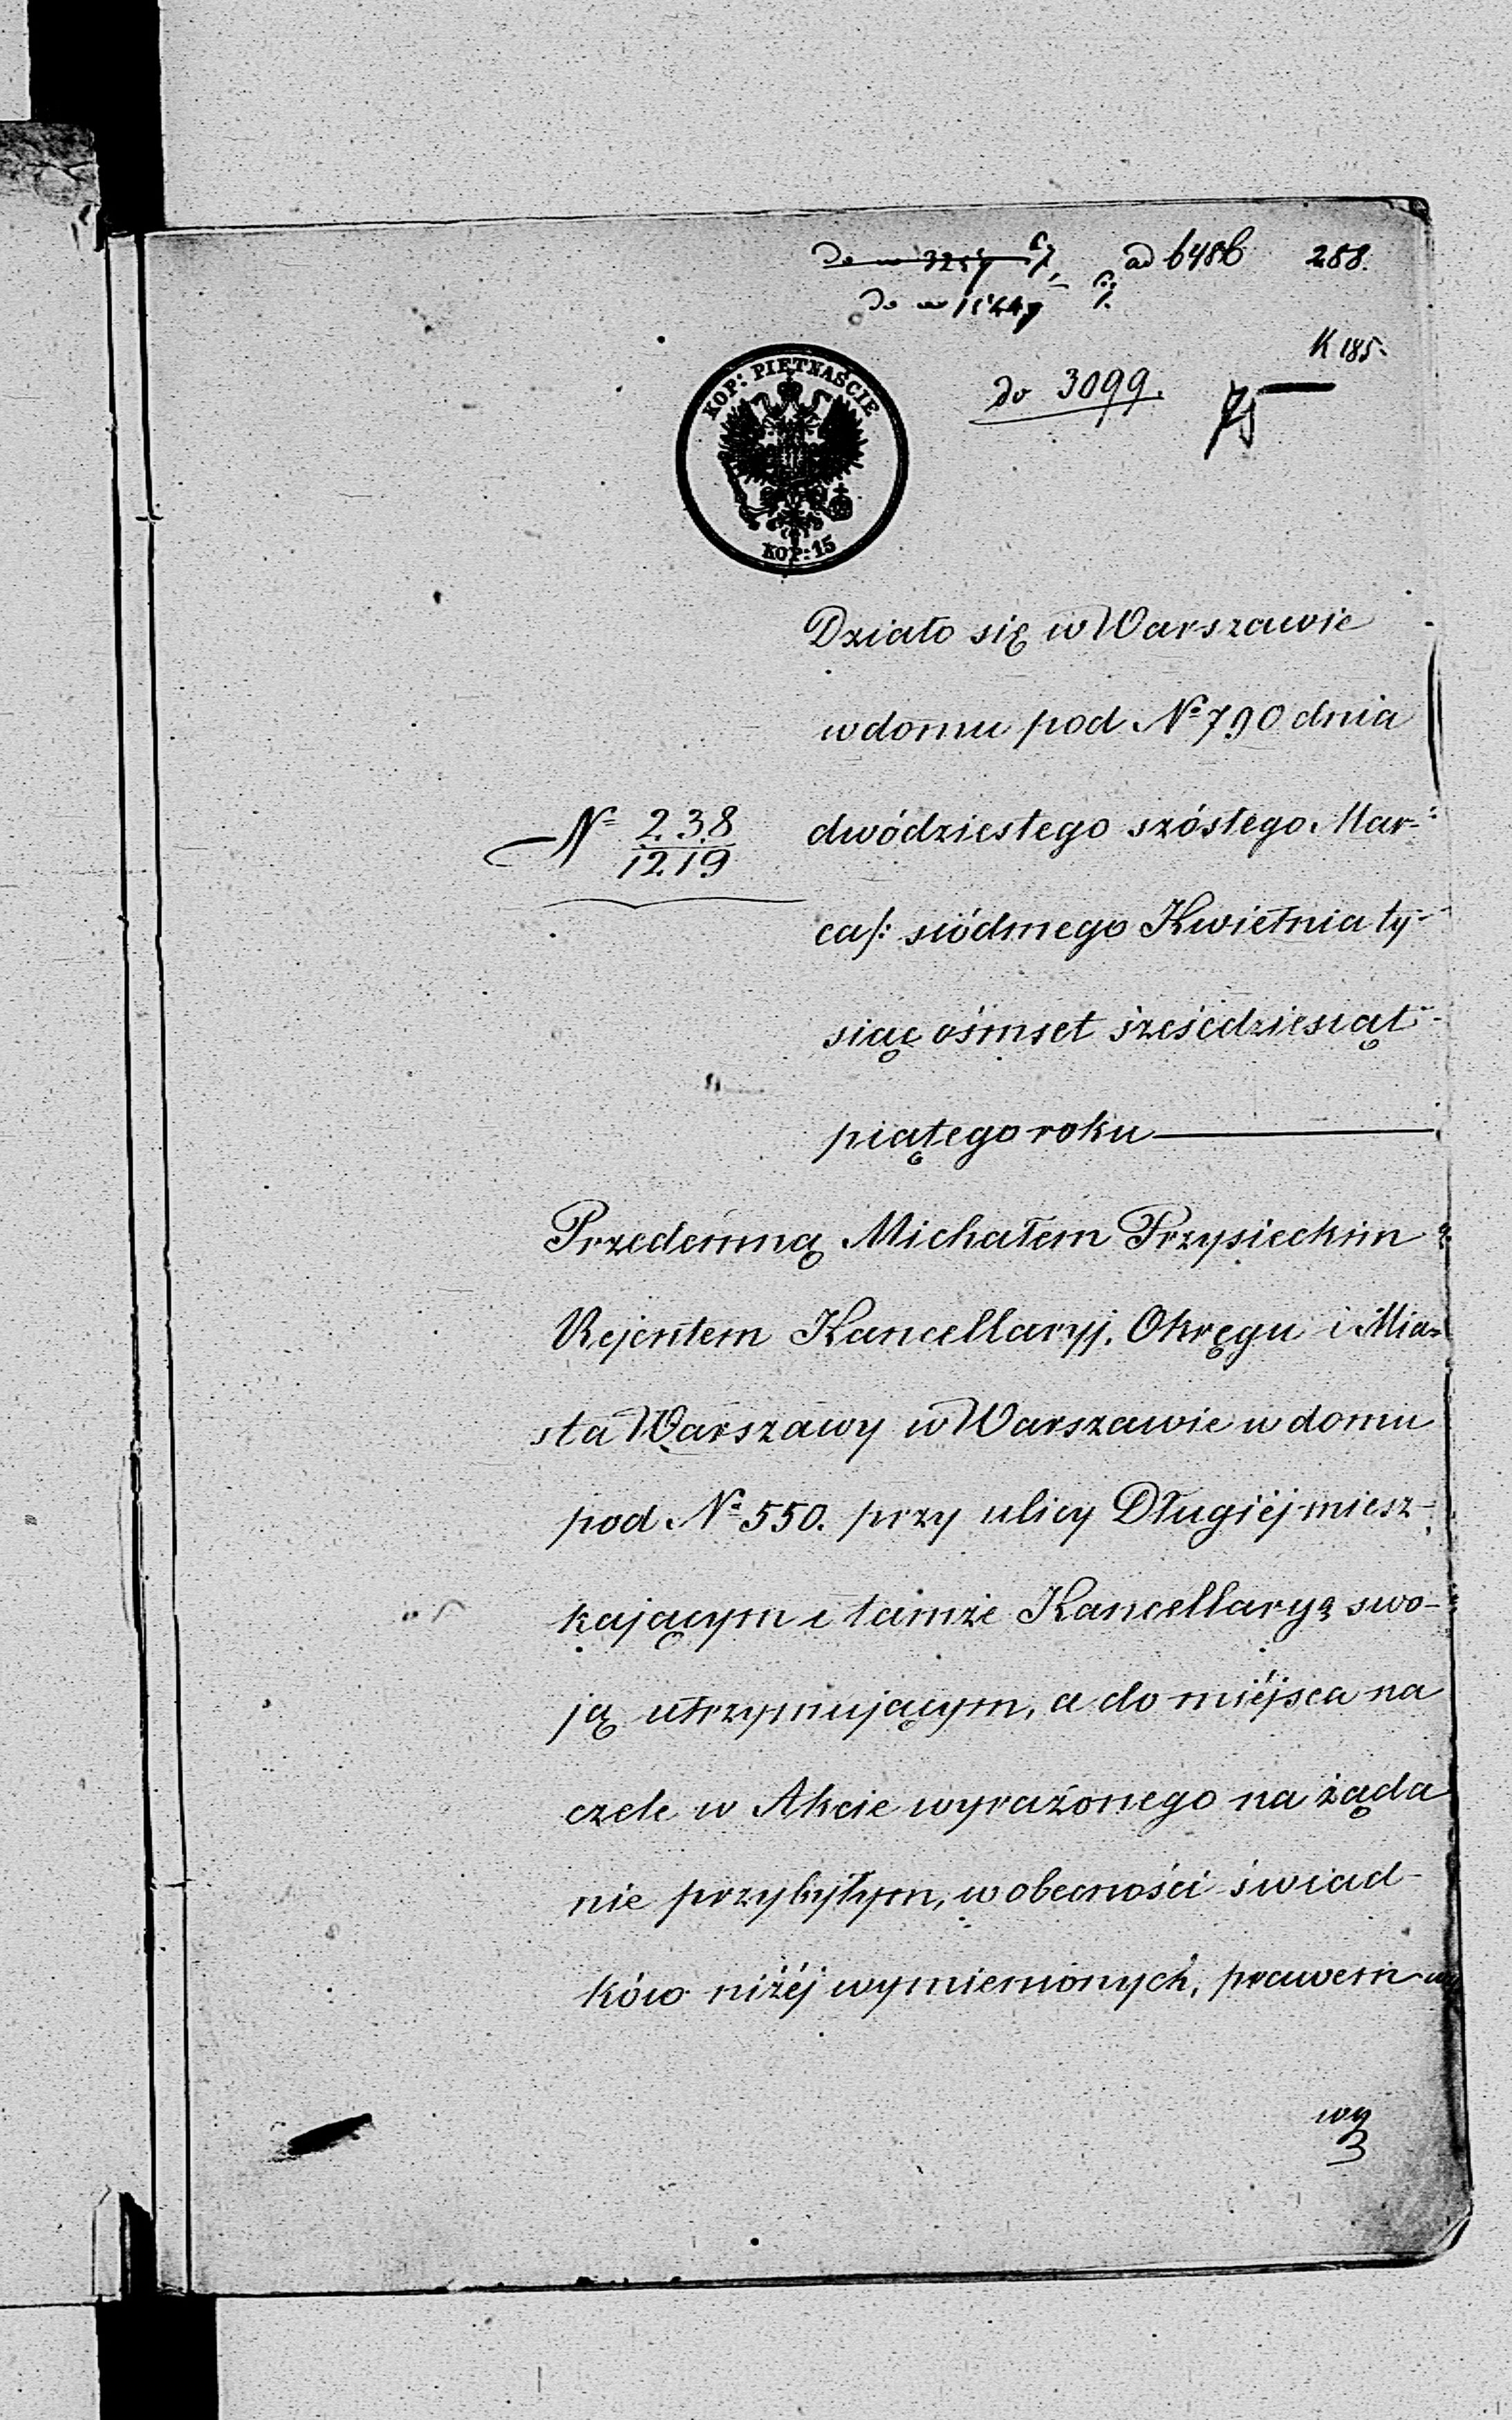 ad 6486 288.
K 185.
do 3099.
KOP: PIĘTNAŚCIE
KOP: 15
Działo się w Warszawie
w domu pod Nº 790 dnia
Nº 238/1219
dwódziestego szóstego Mar-
ca/: siódmego Kwietnia ty-
siąc ośmset sześćdziesiąt
piątego roku
Przedemną Michałem Przysieckim
Rejentem Kancellaryj. Okręgu i Mia-
sta Warszawy w Warszawie w domu
pod Nº 550. przy ulicy Długiéj miesz-
kającym i tamże Kancellaryą swo-
ją utrzymującym, a do miéjsca na
czele w Akcie wyrażonego na żąda
nie przybyłym, w obecności świad-
ków niżéj wymienionych, prawem wy
wy
3